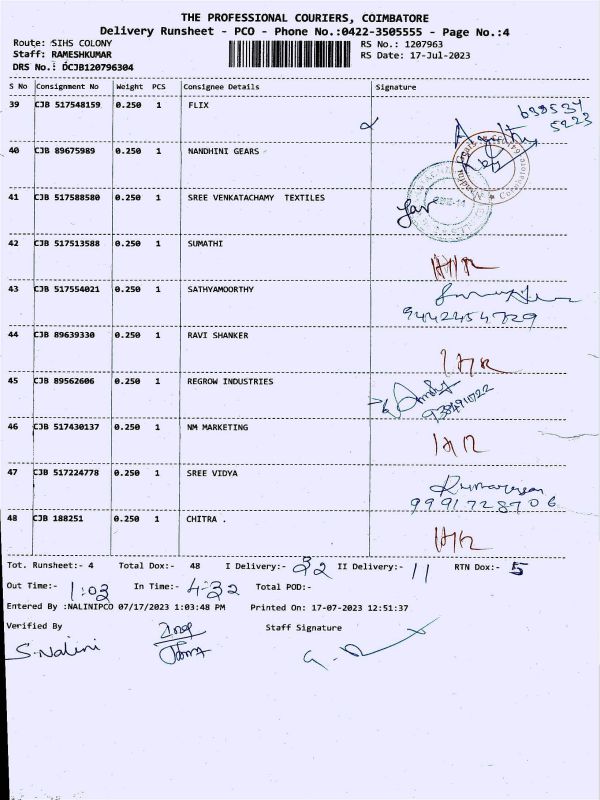 THE PROFESSIONAL COURIERS, COIMBATORE
Delivery Runsheet - PCO - Phone No.:0422-3505555 - Page No.:4
Route: SIHS COLONY
RS No.: 1207963
Staff: RAMESHKUMAR
RS Date: 17-Jul-2023
DRS No.: DCJB120796304
S No Consignment No Weight PCS Consignee Details Signature
39 CJB 517548159 0.250 1 FLIX
40 CJB 89675989 0.250 1 NANDHINI GEARS
41 CJB 517588580 0.250 1 SREE VENKATACHAMY TEXTILES
42 CJB 517513588 0.250 1 SUMATHI
43 CJB 517554021 0.250 1 SATHYAMOORTHY
9442454729
44 CJB 89639330 0.250 1 RAVI SHANKER
45 CJB 89562606 0.250 1 REGROW INDUSTRIES
46 CJB 517430137 0.250 1 NM MARKETING
47 CJB 517224778 0.250 1 SREE VIDYA
9991728706
48 CJB 188251 0.250 1 CHITRA .
Tot. Runsheet:- 4 Total Dox:- 48 I Delivery:- 32 II Delivery:- 11 RTN Dox:- 5
Out Time:- 1:03 In Time:- 4:32 Total POD:-
Entered By :NALINIPCO 07/17/2023 1:03:48 PM Printed On: 17-07-2023 12:51:37
Verified By Staff Signature
S.Nalini